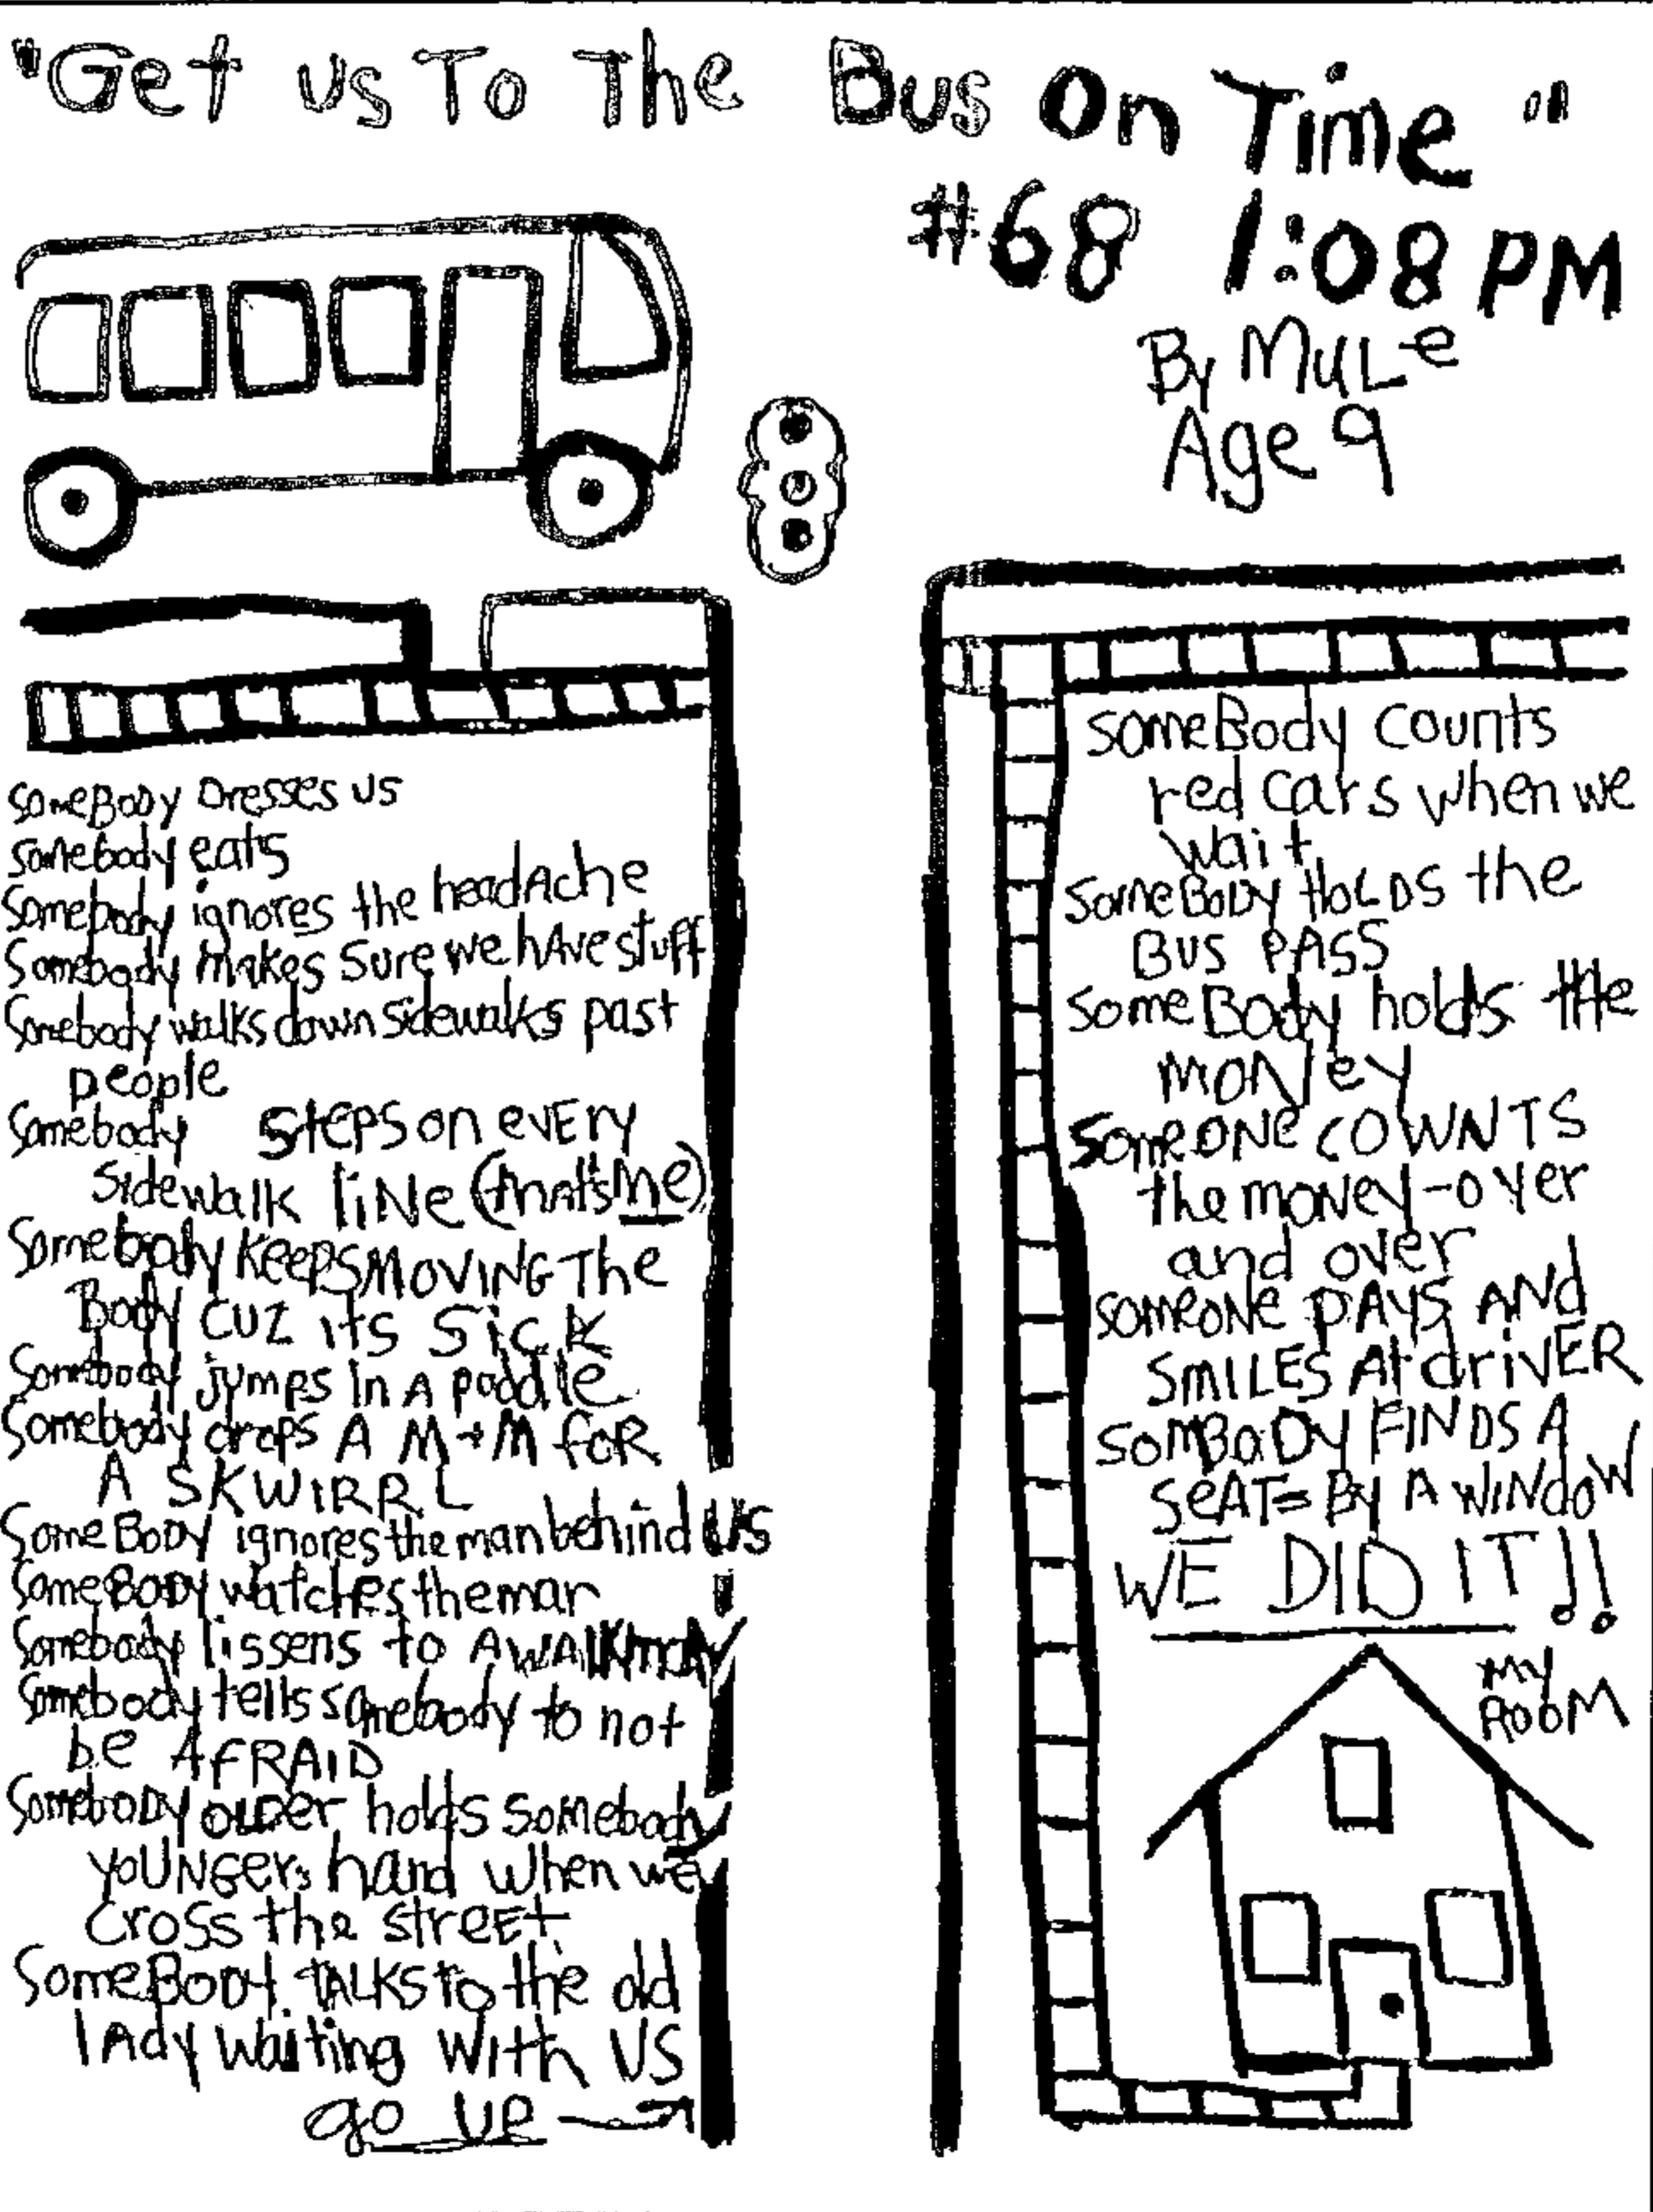 "Get us To The Bus On Time"
#68 1:08 PM
By MuLe
Age 9
SomeBody Dresses us
somebody eats
Somebody ignores the headAche
Somebody makes sure we hAve stuff
Somebody walks down sidewalks past
people
Somebody steps on evERy
sidewalk liNe (that's me)
Somebody KeepsMOVING The
Body cuz its sick
Somebody jumps in A puddle
Somebody drops A M+M foR
A SKWIRRL
SomeBODY ignores the man behind us
SomeBODY watches the man
Somebody lissens to A WAlKmAN
Somebody tells somebody to not
be AfRAID
SomeboDy oLDer holds somebody
yoUNGers hand when we
cross the streEt.
SomeBODY TALKS to the old
lAdy waiting with US
go UP
someBody counts
red cars when we
wait
SomeBoDy HoLDS the
BUS PASS
SomeBody holds tHe
moNey
SomeONe COWNTS
the moNey-over
and over
someoNe pAyS ANd
SMILES At driVER
SoMBoDy FINDS A
SeAT= By A WINdoW
WE DID IT!!
My
RooM